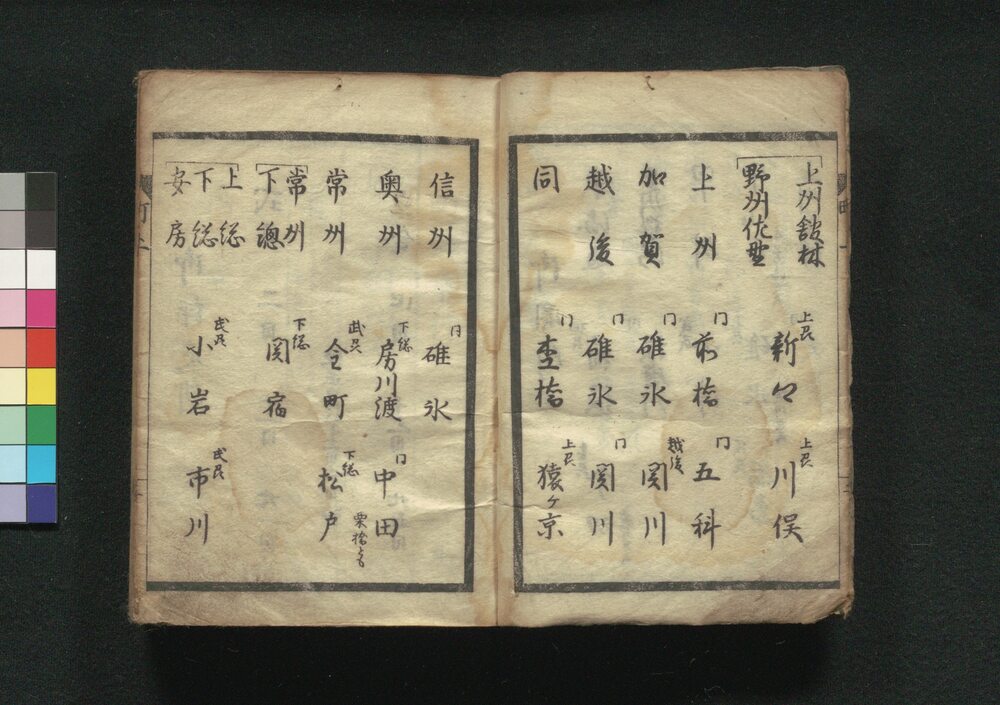 上州舘林
野州佐野
上州 新々 上州 川俣
上州 同 前橋 同 五料
加賀 同 碓氷 越後 関川
越後 同 碓氷 同 関川
同 同 杢橋 上州 猿ケ京
信州 同 碓氷
奥州 下総 房川渡 同 中田
栗橋とも
常州 武州 金町 下総 松戸
常州
下總 下総 関宿
上総
下総
安房 武州 小岩 武州 市川